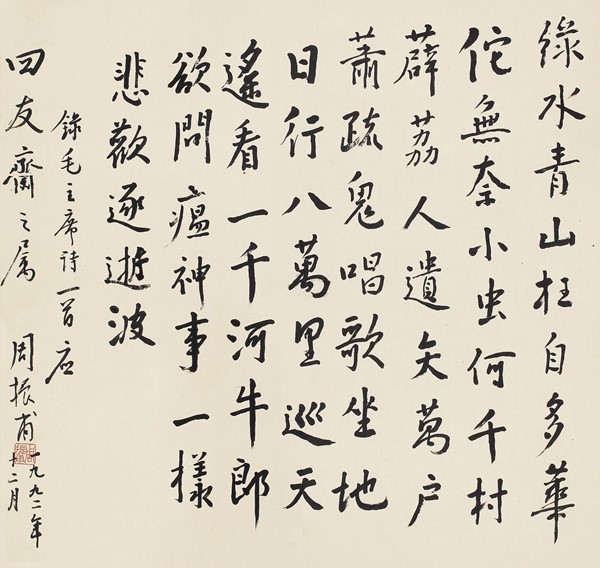 綠水青山枉自多華
佗無奈小虫何千村
薜荔人遺矢萬户
蕭疏鬼唱歌坐地
日行八萬里巡天
遙看一千河牛郎
欲問瘟神事一樣
悲歡逐逝波
錄毛主席詩一首应
四友齋之屬 周振甫
一九九二年
十二月